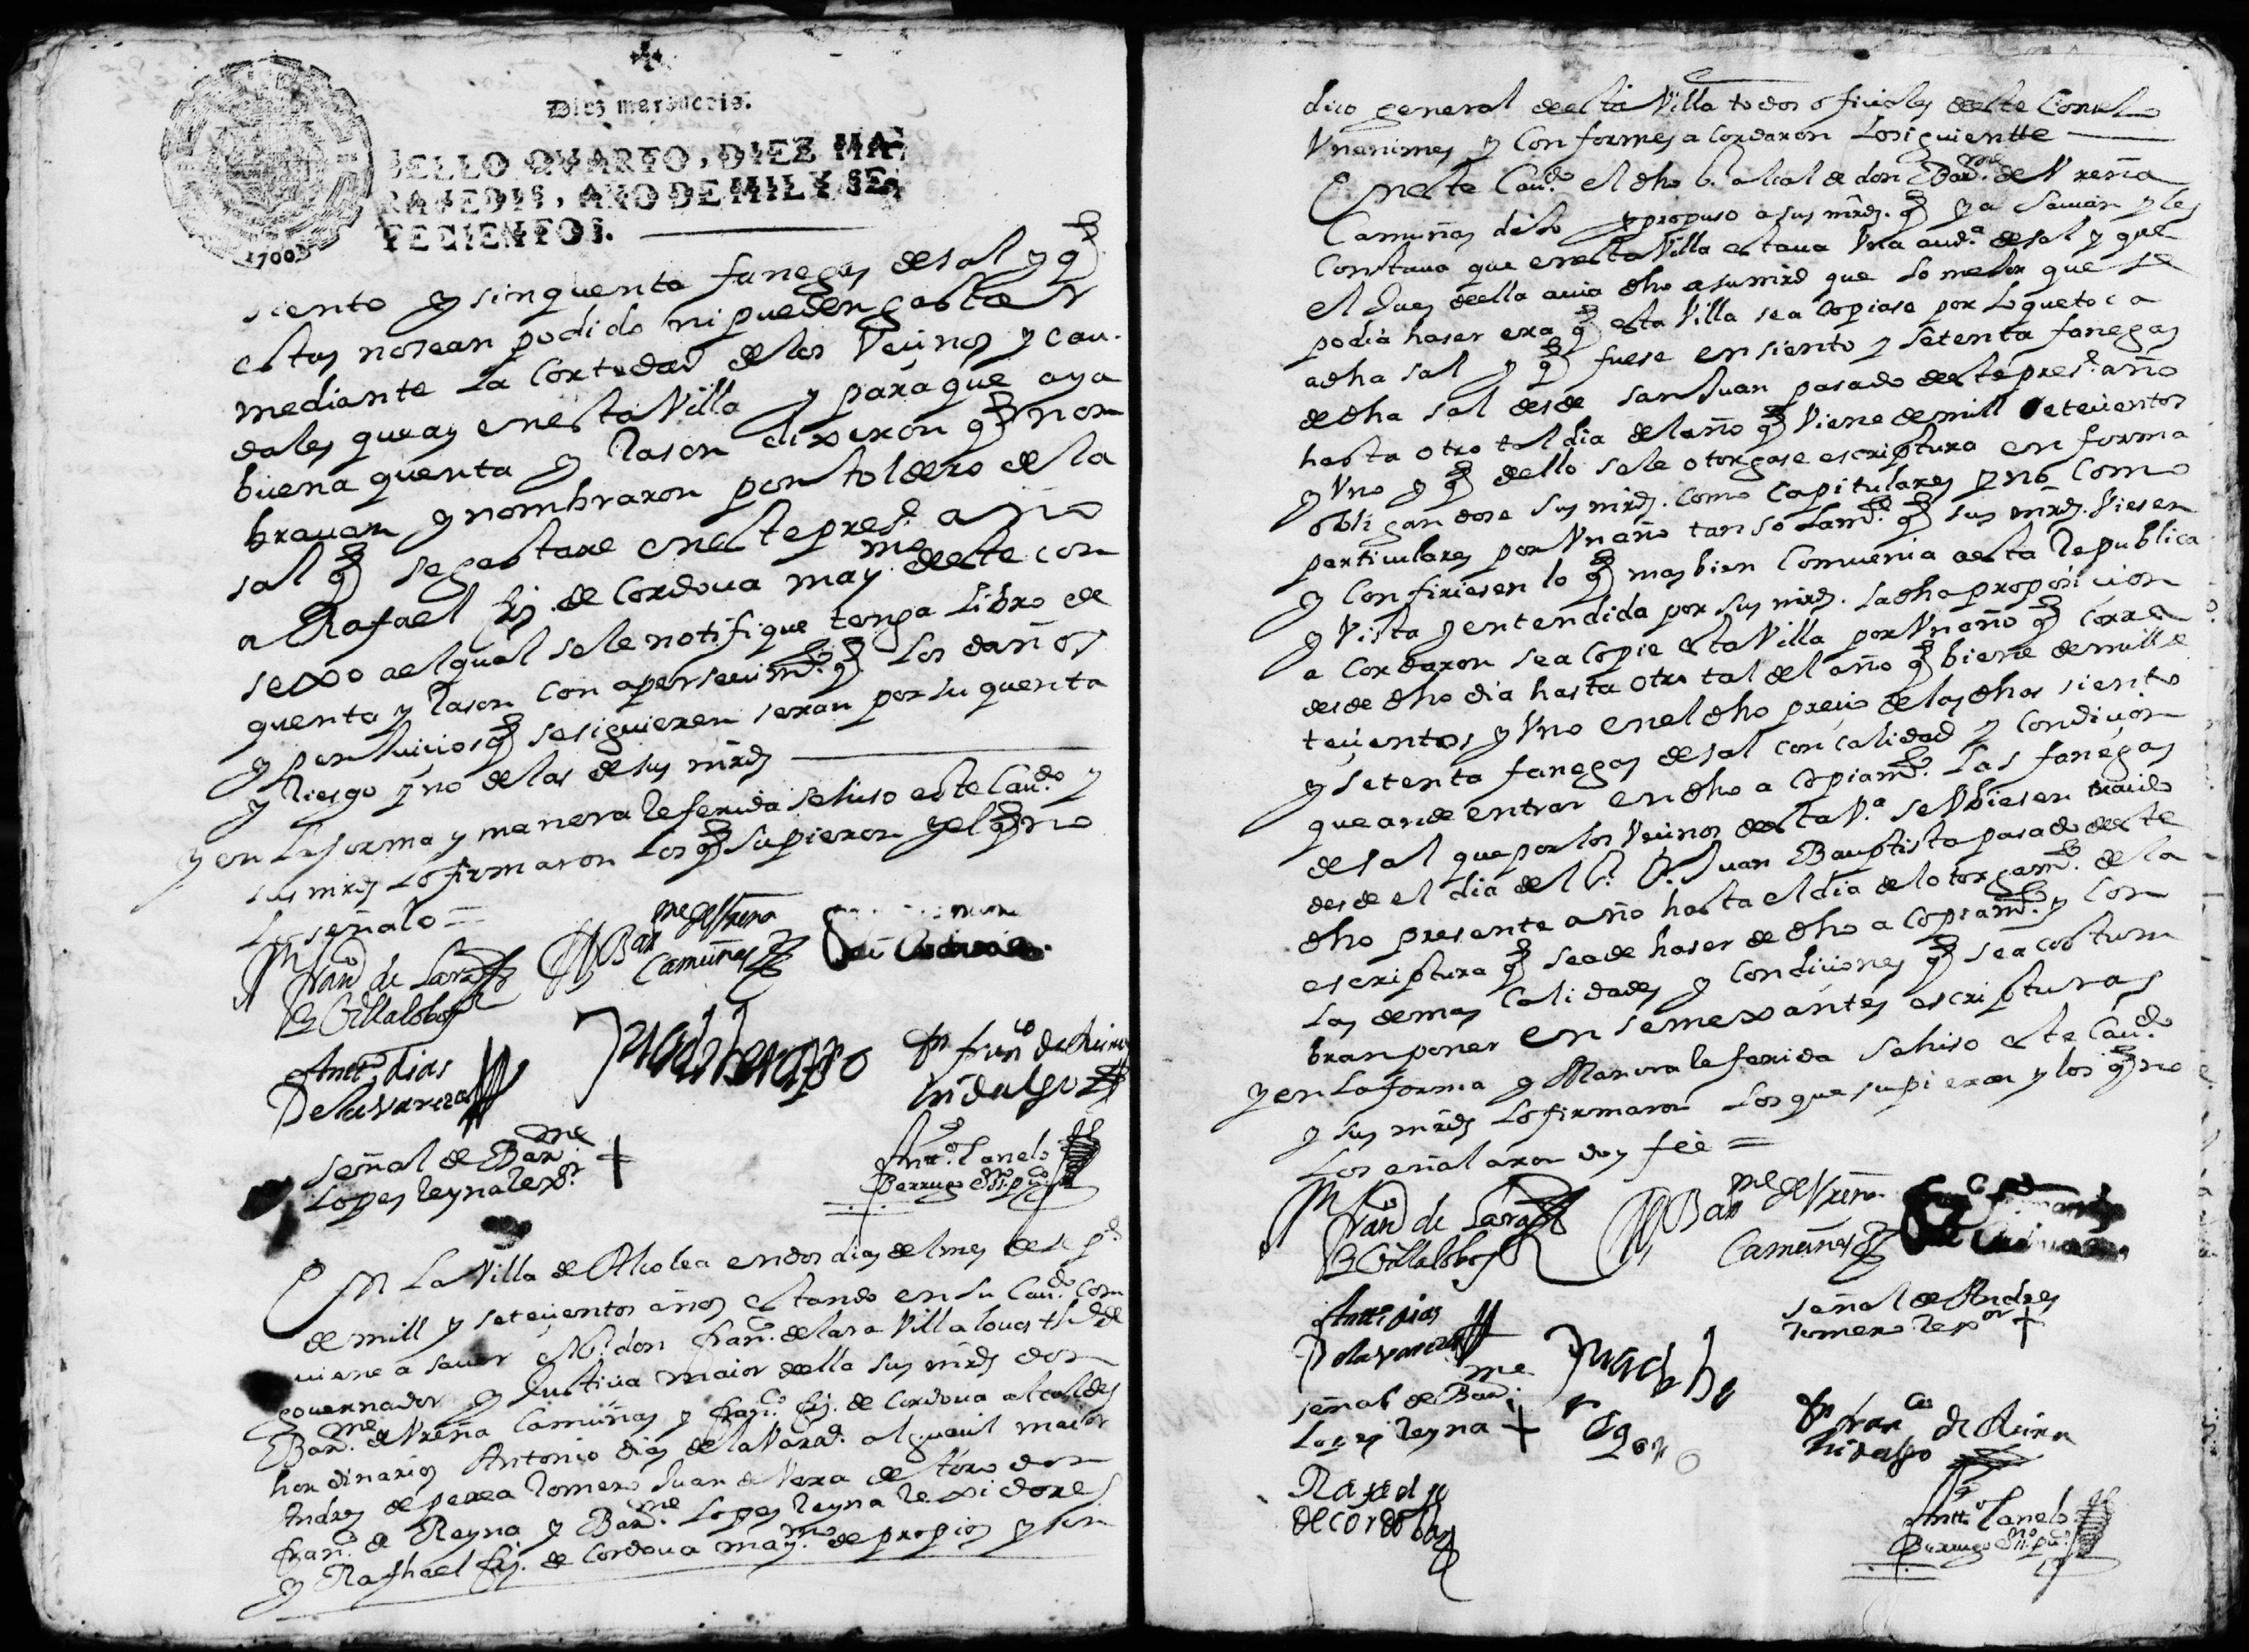 Diez marauedis.
SELLO QVARTO, DIEZ MA-
RAVEDIS, AÑO DE MIL Y SE-
TECIENTOS.
1700
siento y sinquenta fanegas de sal y q
estas nosean podido ni pueden gastar
mediante la Cortedad de los Veçinos y cau-
dales que ay en esta Villa y para que aya
buena quenta y Rason dixeron q nom
bravan y nombraron por toldero de la
sal q se gastare en este prest. año
a Rafael frz. de Cordova may.mo deste con
sexo al qual se le notifique tenga libro de
quenta y Rason con aperseuim.to q los daños
y perJuicios q se siguieren seran por su quenta
y Riesgo y no de las de sus mrds
y en la forma y manera Referida se hiso este Cau.do y
sus mrds lo firmaron los q supieron y el q no
lo señalo =
fran.co de Lara
Villalobos
Bar.me de Vreña
Camuñas
Antt.o dias
De la vareza
Ju.o de Vera
fran.co de Reina
hidalgo
señal de Bar.me +
Lopes Reyna Rex.or
Antt.o Canelo
Berrugo Ess.no pu.co
En la Villa de Alcolea en dos dias del mes de
de mill y seteçientos años estando en su Cau.do Con
uiene a sauer el s.r don fran.co de lara Villalouos
gouernador y Justiçia maior della sus mrds don
Bar.me de Vreña Camuñas y fran.co frz. de Cordoua alcaldes
hordinarios Antonio dias de la Varad. alguaçil maior
Andres de perea Romero Juan de Vera del toro don
fran.co de Reyna y Bar.me Lopes Reyna Rexidores
y Raphael frz. de Cordoua may.mo de propios y sin
dico general de esta Villa todos ofiçiales deeste Consexo
Vnanimes y Conformes acordaron lo siguientte
En este Cau.do el dho s.r alcalde don Bar.me de Vreña
Camuñas dixo y propuso a sus mrds. q ya sauian y les
Constaua que en esta Villa estaua Vna aud.a de sal y que
el Jues della auia dho a su mrd que lo mexor que se
podia haser era q esta Villa se acopiase por lo que toca
a dha sal y q fuese en siento y setenta fanegas
de dha sal desde san Juan pasado deeste prest. año
hasta otro tal dia del año q Viene de mill seteçientos
y Vno y q dello se le otorgase escriptura en forma
obligandose sus mrds. como Capitulares y no como
particulares por Vn año tan solam.te q sus mrds. Viesen
y Confiriesen lo q mas bien Comuenia a esta Republica
y Vista y entendida por sus mrds. la dha proposiçion
acordaron se acopie esta Villa por Vn año q corra
desde dho dia hasta otro tal del año q biene de mill se
teçientos y Vno en el dho preçio de las dhas siento
y setenta fanegas de sal con calidad y condiçion
que an de entrar en dho acopiam.to las fanegas
de sal que por los Veçinos desta V.a se Vbiesen traido
desde el dia del s.r s.n Juan Bauptista pasado deeste
dho presente año hasta el dia del otorgam.to de la
escriptura q se a de haser de dho acopiam.to y con
las demas Calidades y Condiçiones q se acostum
bran poner en semexantes escripturas
y en la forma y Manera Referida se hiso este Cau.do
y sus mrds lo firmaron los que supieron y los q no
lo señalaron doy fee =
fran.co de Lara
Villalobos
Bar.me de Vreña
Camuñas
Antt.o dias
De la vareza
señal de Andres
Romero Rex.or +
señal de Bar.me
Lopes Reyna +
fran.co de Reina
hidalgo
Rafael
de cordoba
Antt.o Canelo
Berrugo Ess.no pu.co